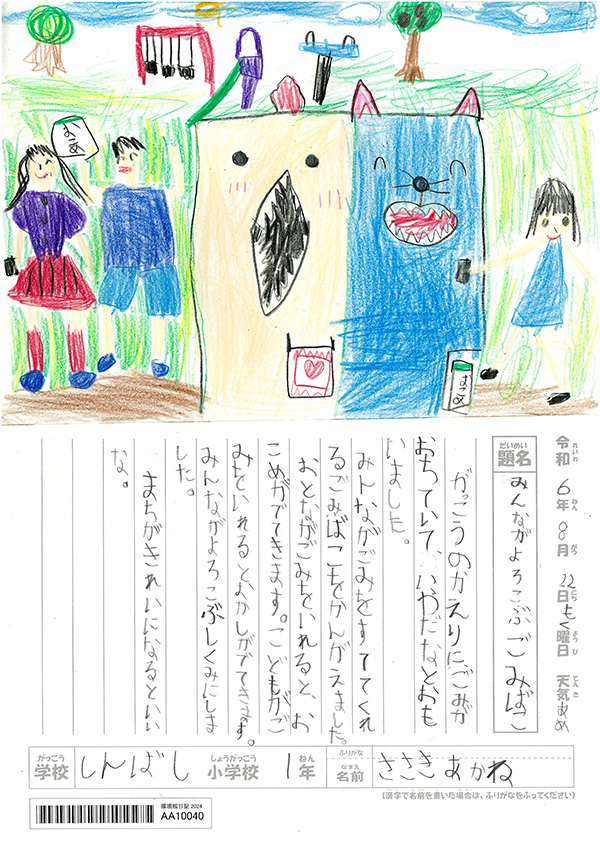 おこめ
おこめ
令和 6年 8月 22日 もく曜日 天気 あめ
れいわ ねん がつ にち ようび てんき
だいめい
題名 みんながよろこぶごみばこ
がっこうのかえりに、ごみが
おちていて、いやだなとおも
いました。
みんながごみをすててくれ
るごみばこをかんがえました。
おとながごみをいれると、お
こめがでてきます。こどもがご
みをいれるとおかしがでてきます。
みんながよろこぶしくみにしま
した。
まちがきれいになるといい
な。
がっこう しょうがっこう ねん ふりがな なまえ
学校 しんばし 小学校 1年 名前 ささきあかね
(漢字で名前を書いた場合は、ふりがなをふってください)
環境絵日記 2024
AA10040